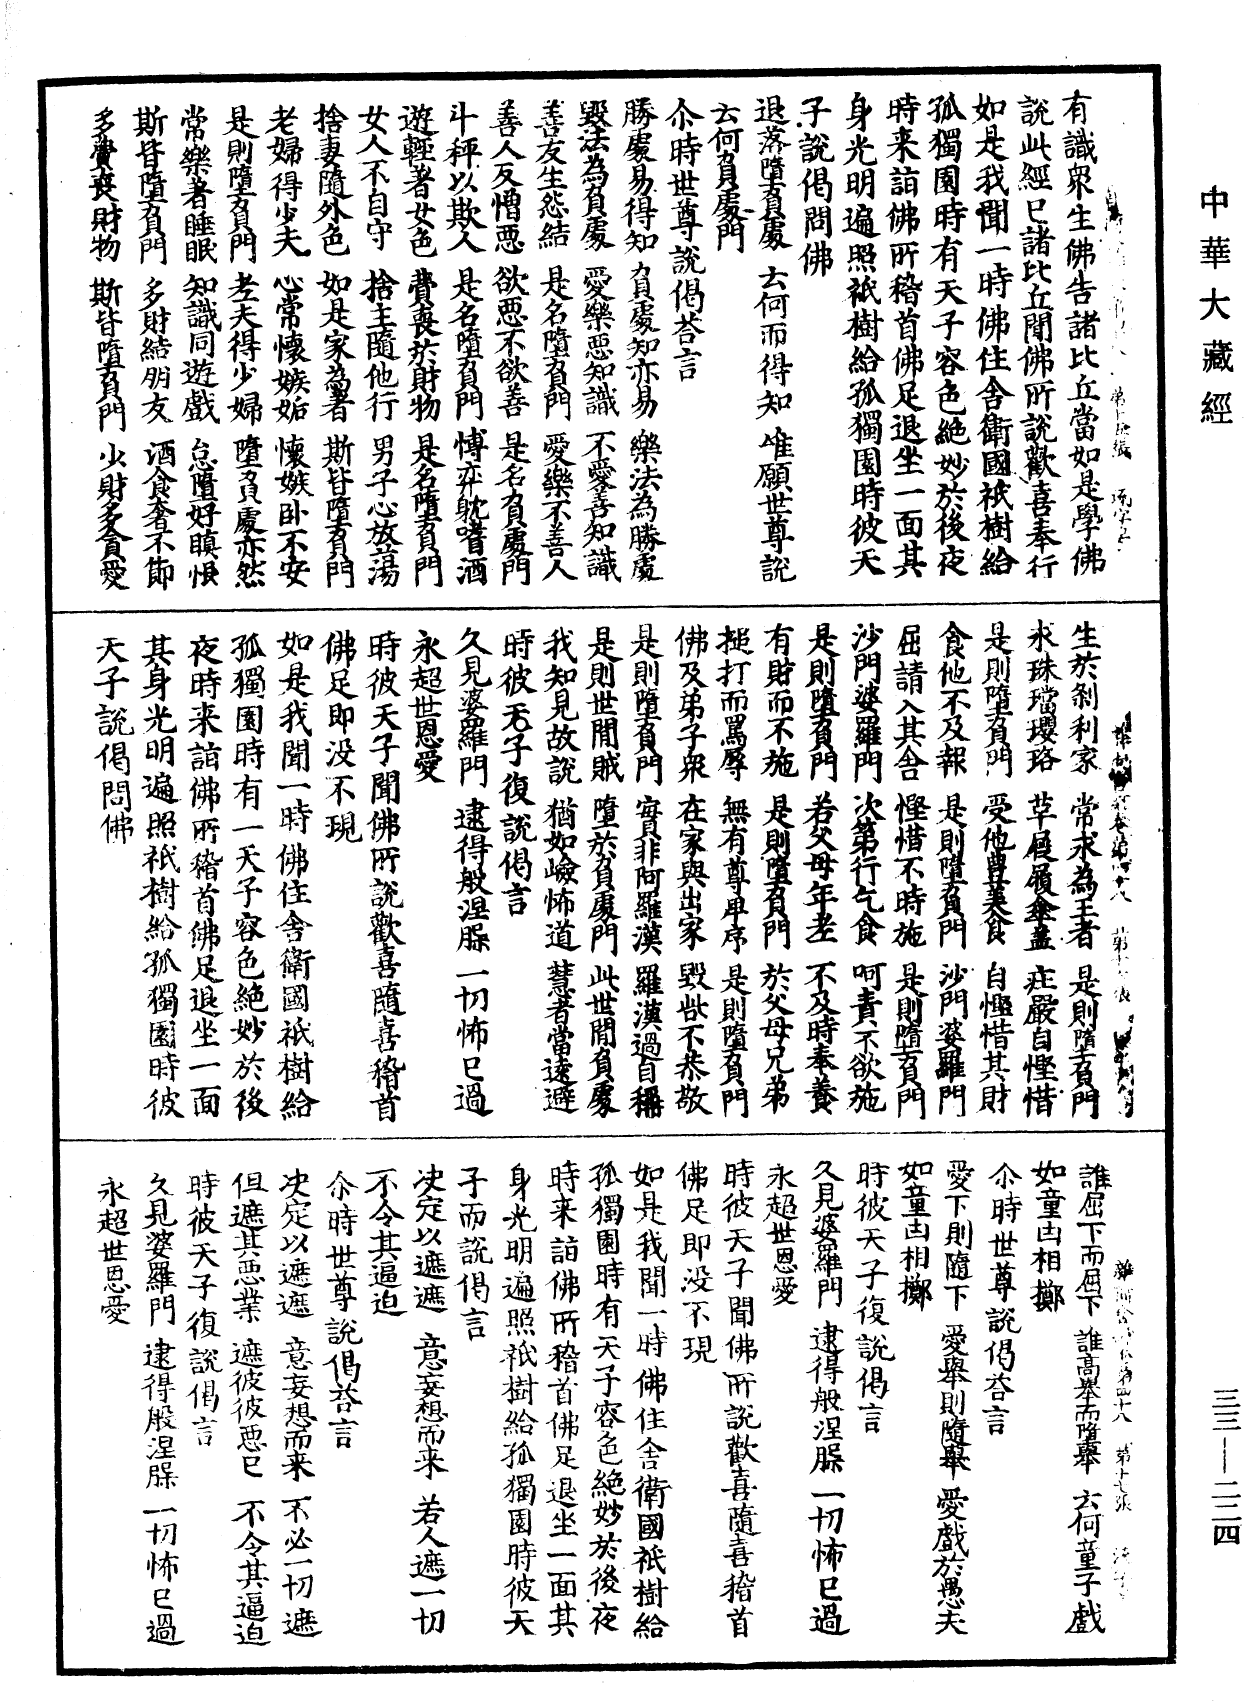 中華大藏經
有識眾生佛告諸比丘當如是學佛
說此經已諸比丘聞佛所說歡喜奉行
如是我聞一時佛住舍衛國祇樹給
孤獨園時有天子容色絕妙於後夜
時来詣佛所稽首佛足退坐一面其
身光明遍照祇樹給孤獨園時彼天
子說偈問佛
退落墮負處 云何而得知 唯願世尊說
云何負處門
尒時世尊說偈荅言
勝處易得知 負處知亦易 樂法為勝處
毀法為負處 愛樂惡知識 不愛善知識
善友生怨結 是名墮負門 愛樂不善人
善人反憎惡 欲惡不欲善 是名負處門
斗秤以欺人 是名墮負門 博弈躭嗜酒
遊輕著女色 費喪於財物 是名墮負門
女人不自守 捨主隨他行 男子心放蕩
捨妻隨外色 如是家為者 斯皆墮負門
老婦得少夫 心常懷嫉妬 懷嫉卧不安
是則墮負門 老夫得少婦 墮負處亦然
常樂著睡眠 知識同遊戲 怠墮好瞋恨
斯皆墮負門 多財結朋友 酒食奢不節
多費喪財物 斯皆墮負門 少財多貪愛
生於剎利家 常求為王者 是則墮負門
求珠璫瓔珞 草屣履傘蓋 庄嚴自慳惜
是則墮負門 受他豊美食 自慳惜其財
食他不及報 是則墮負門 沙門婆羅門
屈請入其舍 慳惜不時施 是則墮負門
沙門婆羅門 次第行乞食 呵責不欲施
是則墮負門 若父母年老 不及時奉養
有財而不施 是則墮負門 於父母兄弟
搥打而罵辱 無有尊卑序 是則墮負門
佛及弟子眾 在家與出家 毀呰不恭敬
是則墮負門 實非阿羅漢 羅漢過自稱
是則世間賊 墮於負處門 此世間負處
我知見故說 猶如嶮怖道 慧者當遠避
時彼天子復說偈言
久見婆羅門 逮得般涅槃 一切怖已過
永超世恩愛
時彼天子聞佛所說歡喜隨喜稽首
佛足即没不現
如是我聞一時佛住舍衛國祇樹給
孤獨園時有一天子容色絕妙於後
夜時来詣佛所稽首佛足退坐一面
其身光明遍照祇樹給孤獨園時彼
天子說偈問佛
誰屈下而屈下 誰高舉而隨舉 云何童子戲
如童凶相擲
尒時世尊說偈荅言
愛下則隨下 愛舉則隨舉 愛戲於愚夫
如童凶相擲
時彼天子復說偈言
久見婆羅門 逮得般涅槃 一切怖已過
永超世恩愛
時彼天子聞佛所說歡喜隨喜稽首
佛足即没不現
如是我聞一時佛住舍衛國祇樹給
孤獨園時有天子容色絕妙於後夜
時来詣佛所稽首佛足退坐一面其
身光明遍照祇樹給孤獨園時彼天
子而說偈言
决定以遮遮 意妄想而来 若人遮一切
不令其逼迫
尒時世尊說偈荅言
决定以遮遮 意妄想而来 不必一切遮
但遮其惡業 遮彼彼惡已 不令其逼迫
時彼天子復說偈言
久見婆羅門 逮得般涅槃 一切怖已過
永超世恩愛
三三—二二四